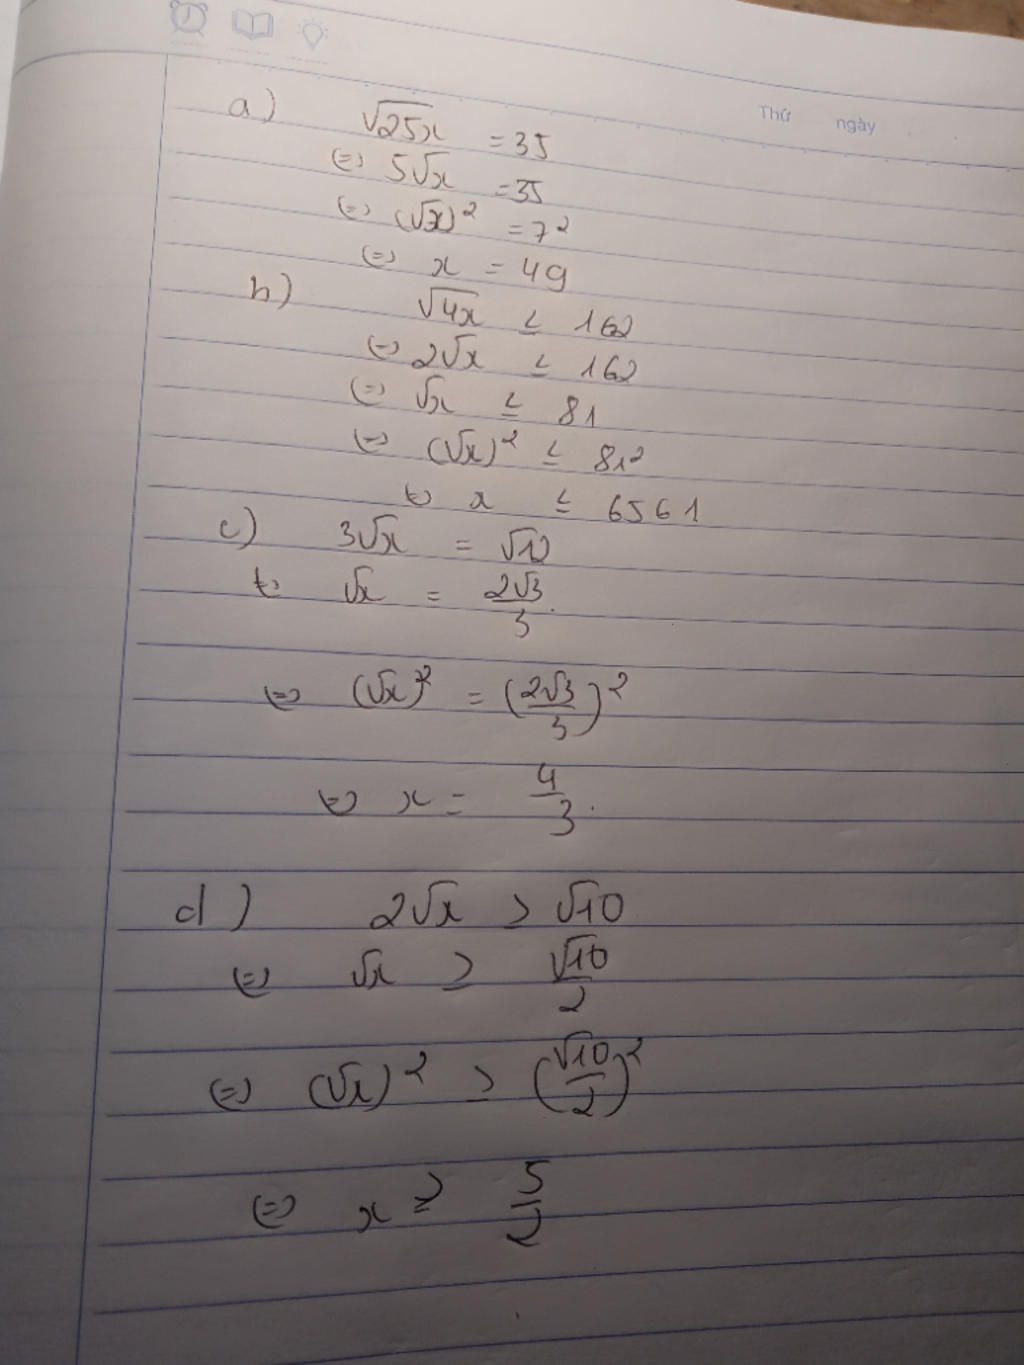 Thứ ngày
a) √25x = 35
(=) 5√x = 35
(=) (√x)² = 7²
(=) x = 49
b) √4x ≤ 162
(=) 2√x ≤ 162
(=) √x ≤ 81
(=) (√x)² ≤ 81²
(=) x ≤ 6561
c) 3√x = √12
(=) √x = 2√3/3
(=) (√x)² = (2√3/3)²
(=) x = 4/3.
d) 2√x > √10
(=) √x > √10/2
(=) (√x)² > (√10/2)²
(=) x ≥ 5/2